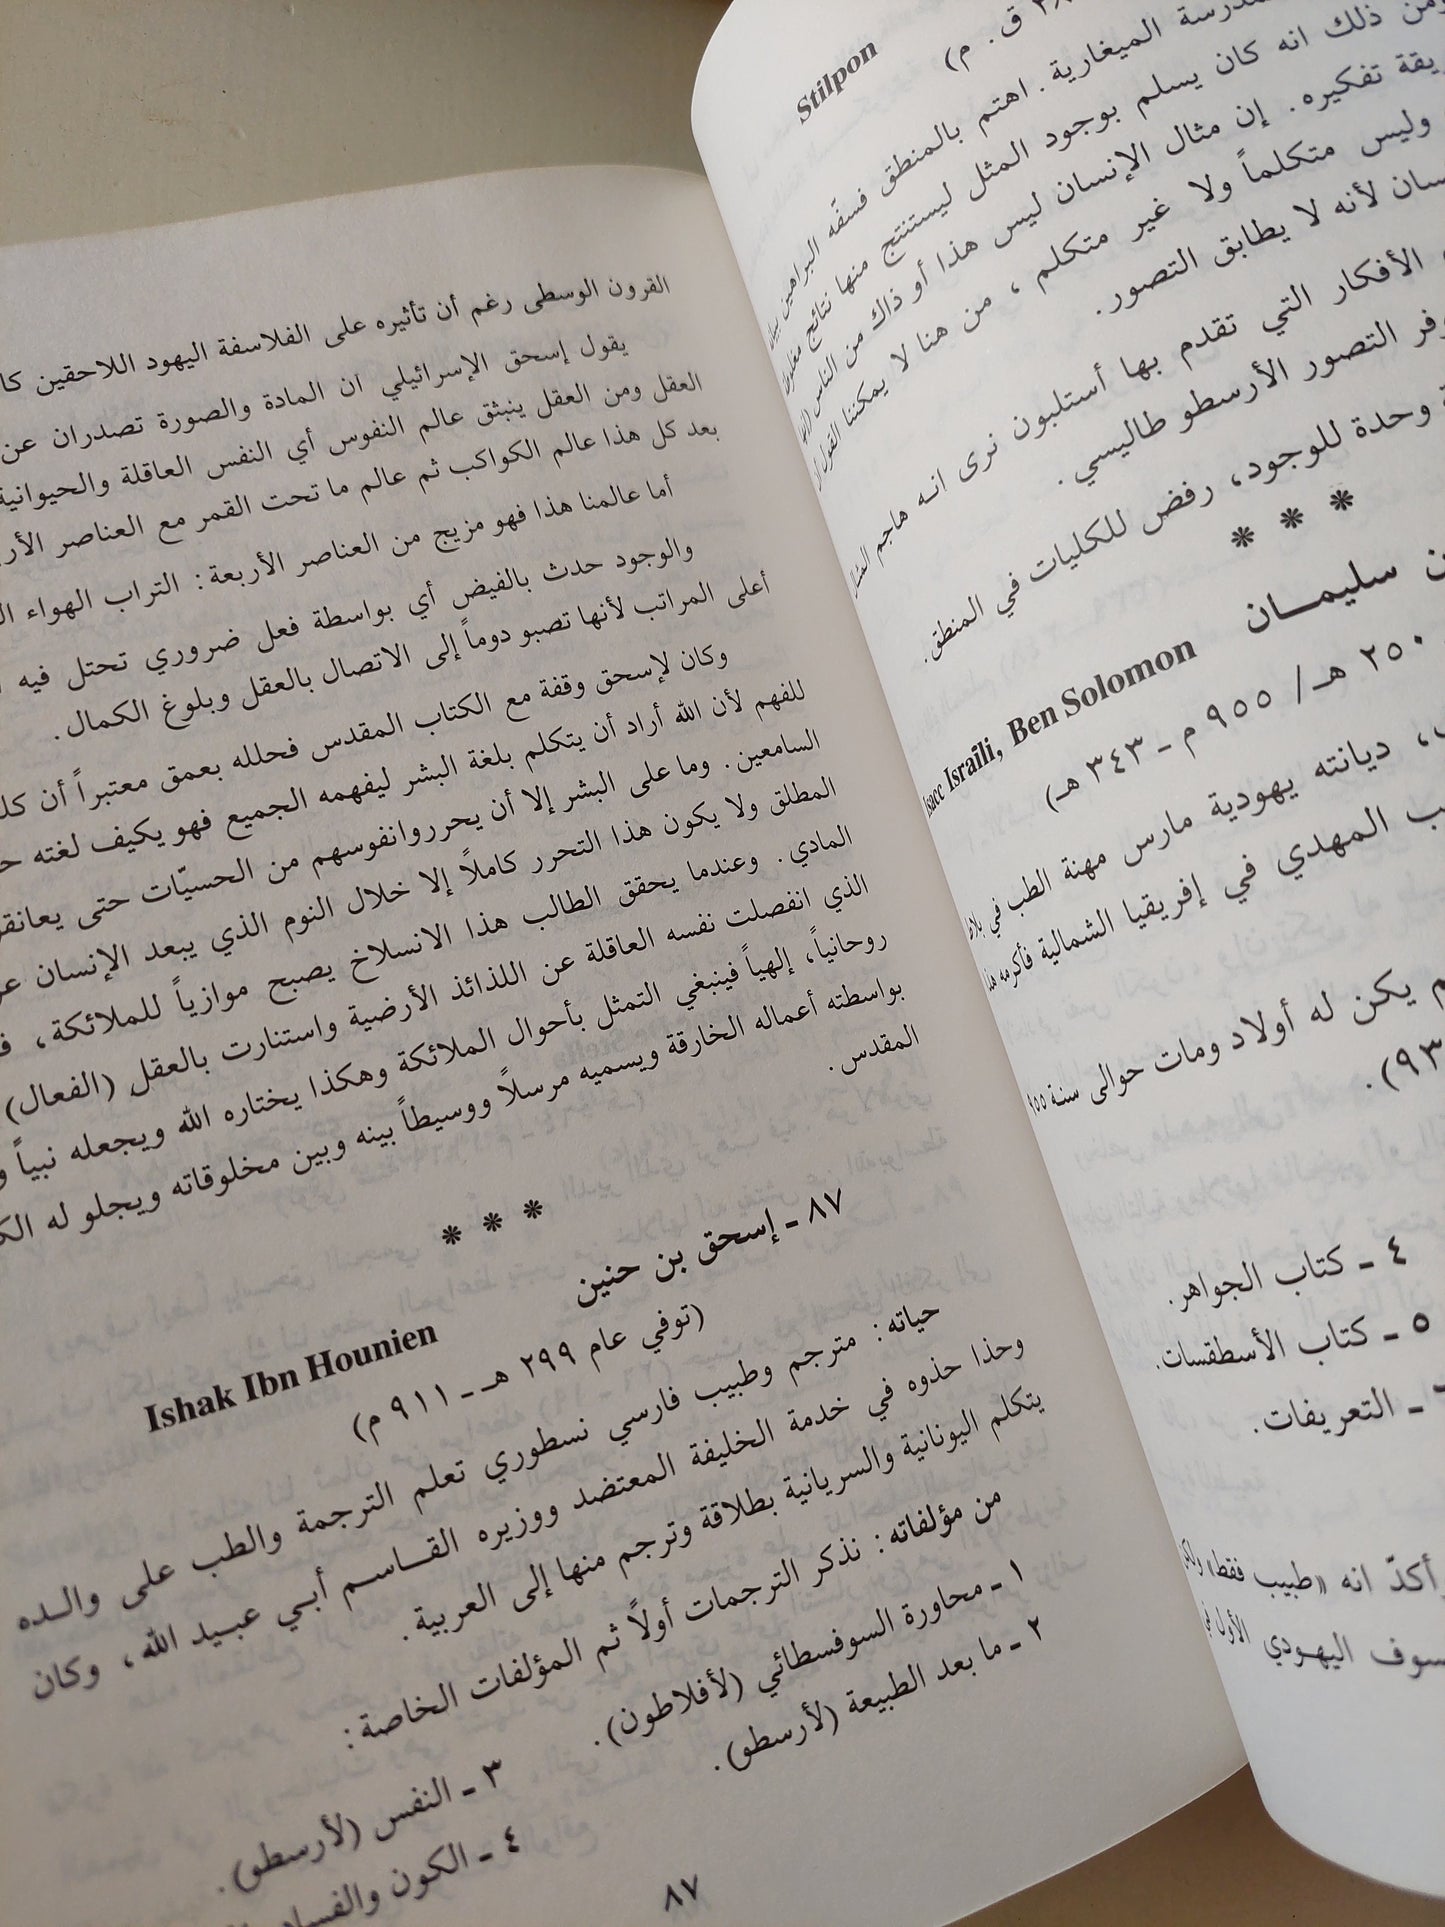 Stilpon
ق. م)
مدرسة الميغارية. اهتم بالمنطق فسفّه البراهين
ومن ذلك انه كان يسلم بوجود المثل ليستنتج منها نتائج
تفكيره. إن مثال الإنسان ليس هذا أو ذاك من الناس
وليس متكلماً ولا غير متكلم ، من هنا لا يمكننا القول
لأنه لا يطابق التصور.
الأفكار التي تقدم بها أستلبون نرى انه هاجم
التصور الأرسطو طاليسي.
وحدة للوجود، رفض للكليات في المنطق.
* * *
سليمـــان Isacc Israili, Ben Solomon
٢٥٠ هـ/ ٩٥٥ م ـ ٣٤٣ هـ)
ديانته يهودية مارس مهنة الطب في
المهدي في إفريقيا الشمالية فأكرمه
يكن له أولاد ومات حوالى سنة ٩٥٥
٤ ـ كتاب الجواهر.
٥ ـ كتاب الأسطقسات.
ـ التعريفات.
أكدّ انه «طبيب فقط»
اليهودي الأول
القرون الوسطى رغم أن تأثيره على الفلاسفة اليهود اللاحقين
يقول إسحق الإسرائيلي ان المادة والصورة تصدران عن
العقل ومن العقل ينبثق عالم النفوس أي النفس العاقلة والحيوانية
بعد كل هذا عالم الكواكب ثم عالم ما تحت القمر مع العناصر
أما عالمنا هذا فهو مزيج من العناصر الأربعة: التراب الهواء
والوجود حدث بالفيض أي بواسطة فعل ضروري تحتل فيه
أعلى المراتب لأنها تصبو دوماً إلى الاتصال بالعقل وبلوغ الكمال.
وكان لإسحق وقفة مع الكتاب المقدس فحلله بعمق معتبراً أن
للفهم لأن الله أراد أن يتكلم بلغة البشر ليفهمه الجميع فهو يكيف لغته
السامعين. وما على البشر إلا أن يحرروانفوسهم من الحسيّات حتى
المطلق ولا يكون هذا التحرر كاملاً إلا خلال النوم الذي يبعد الإنسان
المادي. وعندما يحقق الطالب هذا الانسلاخ يصبح موازياً للملائكة،
الذي انفصلت نفسه العاقلة عن اللذائذ الأرضية واستنارت بالعقل (الفعال)
روحانياً، إلهياً فينبغي التمثل بأحوال الملائكة وهكذا يختاره الله ويجعله نبياً
بواسطته أعماله الخارقة ويسميه مرسلاً ووسيطاً بينه وبين مخلوقاته ويجلو له
المقدس.
* * *
٨٧ ـ إسحق بن حنين Ishak Ibn Hounien
(توفي عام ٢٩٩ هـ ـ ٩١١ م)
حياته: مترجم وطبيب فارسي نسطوري تعلم الترجمة والطب على والـده
وحذا حذوه في خدمة الخليفة المعتضد ووزيره القــاسـم أبـي عبـيد الله، وكان
يتكلم اليونانية والسريانية بطلاقة وترجم منها إلى العربية.
من مؤلفاته: نذكر الترجمات أولاً ثم المؤلفات الخاصة:
١ ـ محاورة السوفسطائي (لأفلاطون).
٢ ـ ما بعد الطبيعة (لأرسطو).
٣ ـ النفس (لأرسطو).
٤ ـ الكون والفساد
٨٧